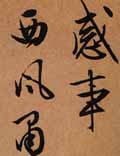 感事
西风甬